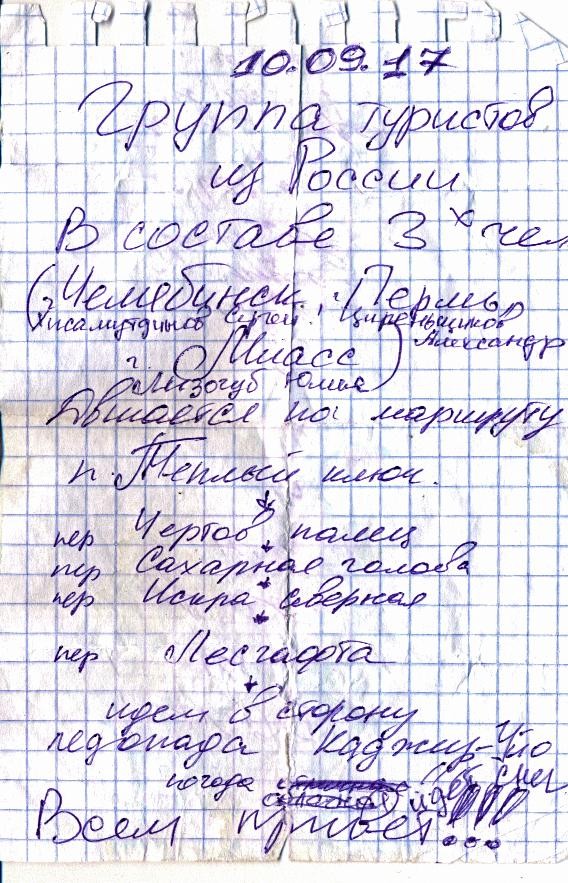 10.09.17
Группа туристов
из России
В составе 3х чел
(г. Челябинск, г. Пермь,
Хисамутдинов Сергей, Циреньщиков
Александр
г. Миасс)
Мизогуб Юлия
Двигается по маршруту
п. Теплый ключ.
пер Чертов палец
пер Сахарная голова
пер Искра северная
пер Лесгафта
идем в сторону
ледопада Каджыр-Уйо
погода
(идет снег
Всем привет...